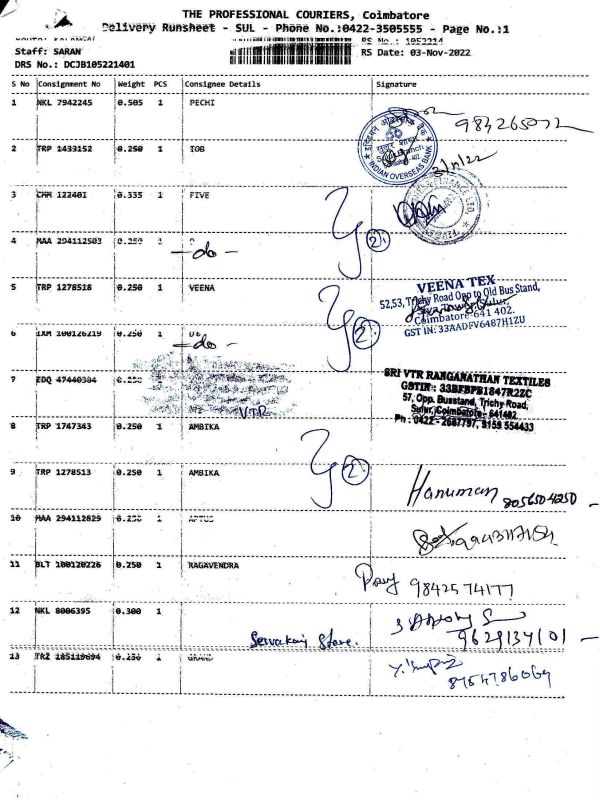 THE PROFESSIONAL COURIERS, Coimbatore
Delivery Runsheet - SUL - Phone No.:0422-3505555 - Page No.:1
Staff: SARAN
RS No.: 1052214
DRS No.: DCJB105221401
RS Date: 03-Nov-2022
S No Consignment No Weight PCS Consignee Details Signature
1 NKL 7942245 0.505 1 PECHI
2 TRP 1433152 0.250 1 IOB
INDIAN OVERSEAS BANK
3 CHM 122401 0.335 1 FIVE
4 MAA 294112503 0.250 1
- do -
2
5 TRP 1278518 0.250 1 VEENA
VEENA TEX
52,53, Trichy Road Opp to Old Bus Stand,
Coimbatore-641 402.
GST IN: 33AADFV6487H1ZU
2
6 IXM 100126219 0.250 1
- do -
7 EDQ 47440384 0.250
VTR
SRI VTR RANGANATHAN TEXTILES
GSTIN : 33BFBPB1847R2ZC
57, Opp. Busstand, Trichy Road,
Sulur, Coimbatore - 641402
Ph : 0422 - 2687797, 9159 554433
8 TRP 1747343 0.250 1 AMBIKA
9 TRP 1278513 0.250 1 AMBIKA
2
Hanuman 8056504250
10 MAA 294112829 0.250 1 APTUS
11 BLT 100120226 0.250 1 RAGAVENDRA
9842574177
12 NKL 8006395 0.300 1
Store.
9629137101
13 TRZ 185119694 0.250 1 GRAND
8754786069